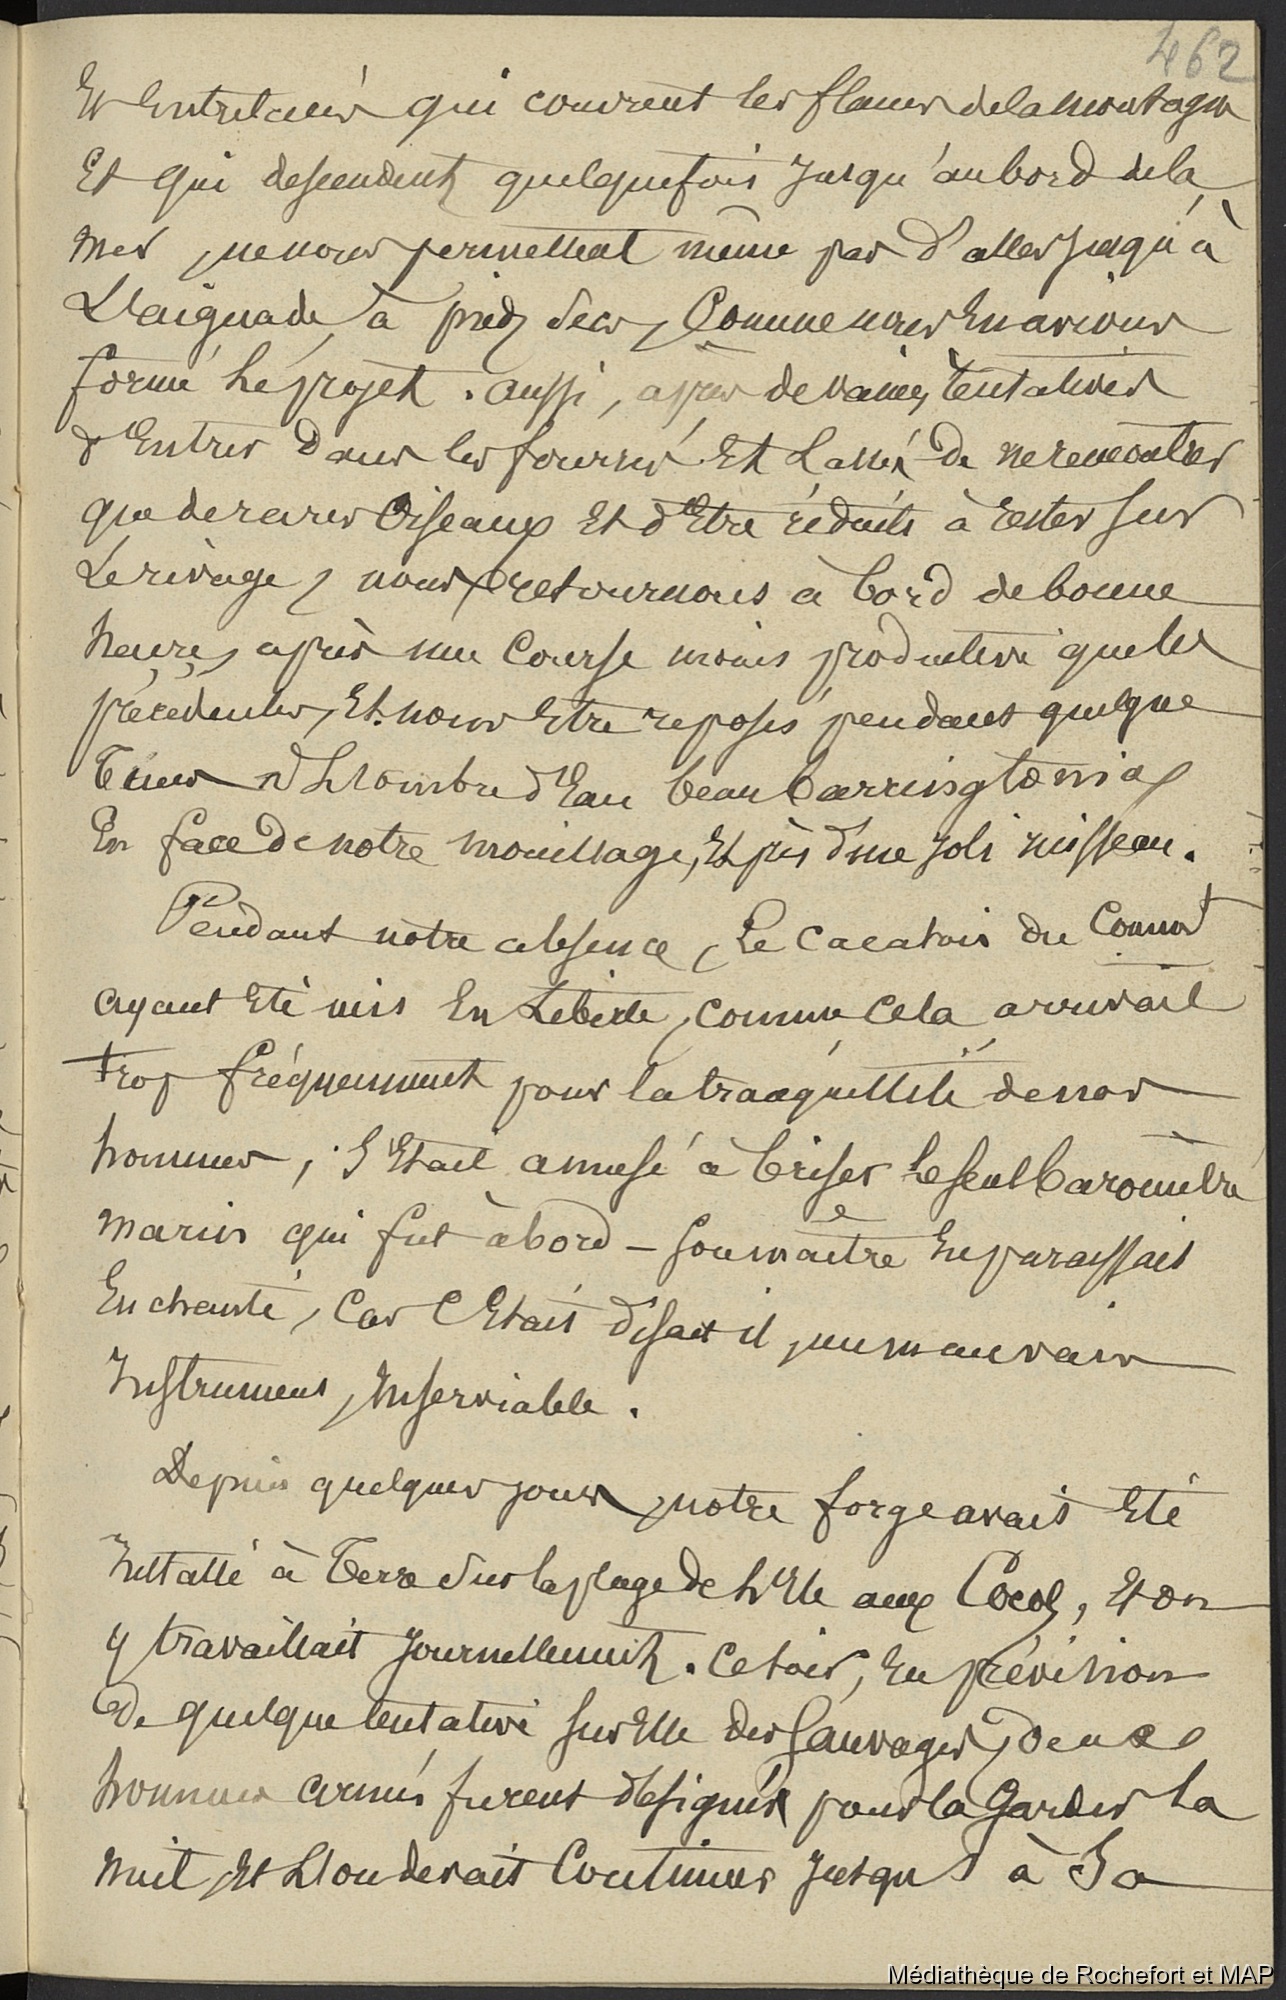 462
Et Entrelacés qui couvrent les flancs de la montagne
Et qui descendent quelquefois jusqu'au bord de la
mer, ne nous permettent même pas d'aller jusqu'à
L'aiguade, à pieds secs, Comme nous En avions
formé Le projet. aussi, après de vaines tentatives
d'Entrer Dans les fourrés Et Lassés De ne rencontrer
que de rares Oiseaux Et d'Etre réduits à rester sur
Le rivage, nous retournons à bord de bonne
heure, après une Course moins productive que les
précédentes, Et nous Etre reposés pendant quelque
tems à L'ombre d'Eau beau barringtonia,
En face De notre mouillage, Et près d'une joli ruisseau.
Pendant notre absence, Le Cacatois du Commt
ayant Eté mis En Liberté, comme Cela arrivait
trop fréquemment pour la tranquillité de nos
hommes, s'Etait amusé à briser Le seul baromètre
marin qui fut à bord – son maitre En paraissait
Enchanté, Car C'Etait disait il, un mauvais
Instrument, Inserviable.
Depuis quelques jours, notre forge avait Eté
Installé à Terre sur la plage de L'Ile aux Cocos, Et on
y travaillait journellement. Ce soir, En prévision
De quelque tentative sur Elle des Sauvages, deux
hommes armés furent désignés pour la Garder La
nuit, Et L'on devait Continuer jusqu'à Sa
Médiathèque de Rochefort et MAP